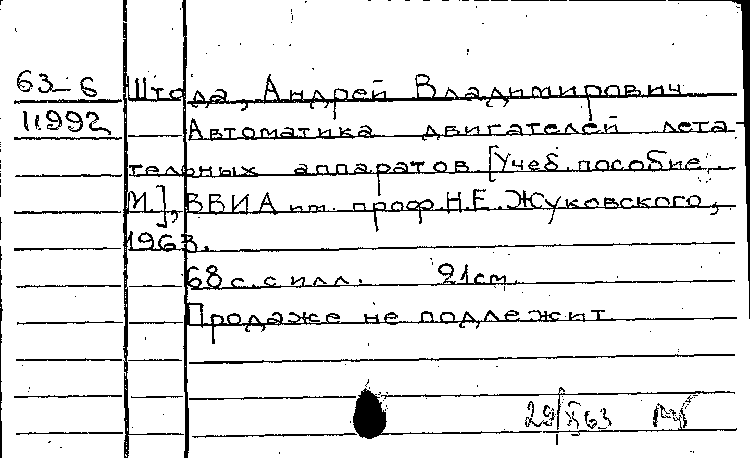 63-6 Штода, Андрей Владимирович
11992 Автоматика двигателей лета-
тельных аппаратов [Учеб. пособие.
М.], ВВИА им. проф. Н.Е. Жуковского,
1963.
68 с. с илл. 21 см.
Продаже не подлежит
29/XI 63